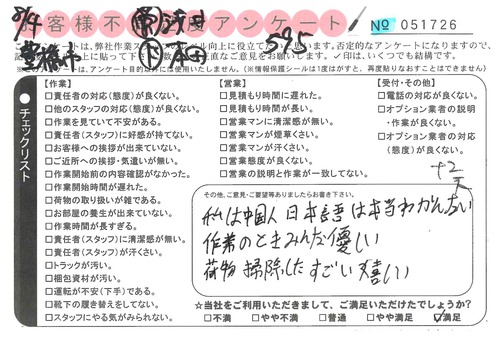 お客様不満度アンケート
№ 051726
2/4
豊橋市
595
このアンケートは、弊社作業スタッフのレベル向上に役立てたいと思います。否定的なアンケートになりますので、
✓印は、いくつでも結構です。
※このアンケートは、アンケート目的以外には使用いたしません。(※情報保護シールは1度はがすと、再度貼りなおすことはできません)
チェックリスト
【作業】
□責任者の対応(態度)が良くない。
□他のスタッフの対応(態度)が良くない。
□作業を見ていて不安がある。
□責任者(スタッフ)に好感が持てない。
□お客様への挨拶が出来ていない。
□ご近所への挨拶・気遣いが無い。
□作業開始前の内容確認がなかった。
□作業開始時間が遅れた。
□荷物の取り扱いが雑である。
□お部屋の養生が出来ていない。
□作業時間が長すぎる。
□責任者(スタッフ)に清潔感が無い。
□責任者(スタッフ)が汗くさい。
□トラックが汚い。
□梱包資材が汚い。
□運転が不安(下手)である。
□靴下の履き替えをしてない。
□スタッフにやる気がみられない。
【営業】
□見積もり時間に遅れた。
□見積もり時間が長い。
□営業マンに清潔感が無い。
□営業マンが煙草くさい。
□営業マンが汗くさい。
□営業態度が良くない。
□営業の説明と作業が一致してない。
【受付・その他】
□電話の対応が良くない。
□オプション業者の説明
・作業が良くない。
□オプション業者の対応
(態度)が良くない。
その他、ご意見・ご要望等ありましたらお書き下さい。
私は中国人 日本語は本当わかんない
作業のときみんな優しい
荷物 掃除した すごい 嬉しい
☆当社をご利用いただきまして、ご満足いただけたでしょうか?
□不満 □やや不満 □普通 □やや満足 ☑満足